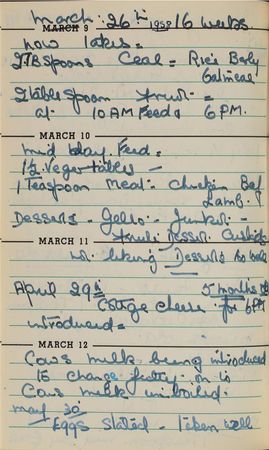 March 26th 1958 16 weeks.
MARCH 9
now takes =
2 TB Spoons Ceal = Rice Barly
Oatmeal
2 table Spoon fruit =
at 10 AM Feed & 6 PM.
MARCH 10
mid day Feed =
1½ Vegertables —
1 Teaspoon meat = Chicken Bef
Lamb.
Desserts - Gello - Junket -
MARCH 11
Fruit Desser. Custards
liking Desserts
April 29th 5 months
Cottge Cheese for 6 PM
introduced =
MARCH 12
Cows milk being introduced
to change
Cows milk unboiled.
May 30
Eggs Stated - Taken well